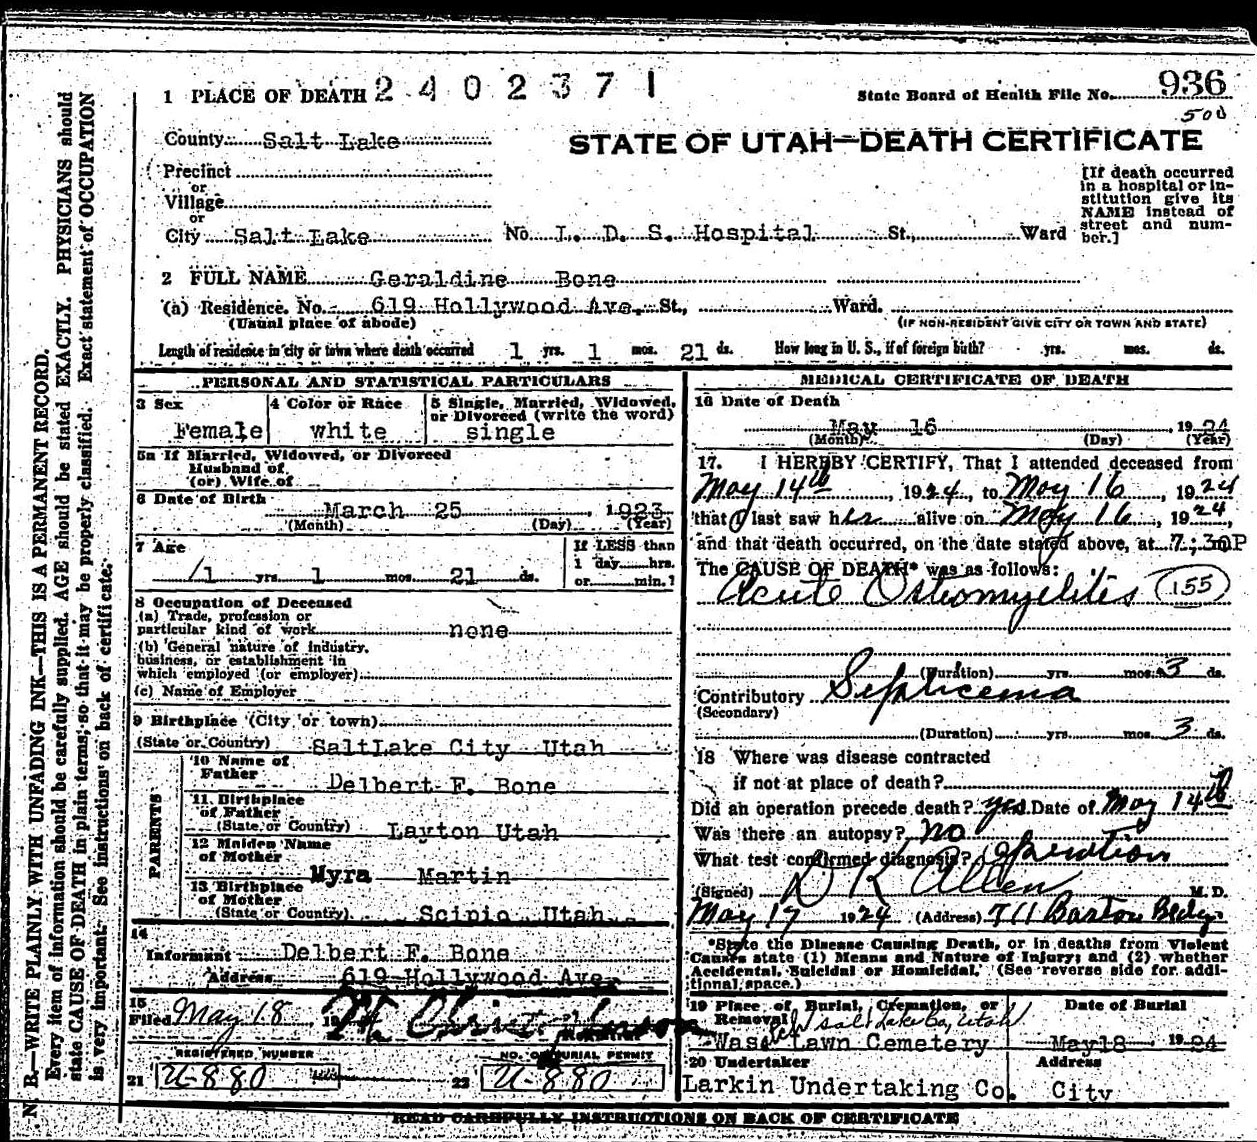 1 PLACE OF DEATH 2402371
State Board of Health File No. 936
500
County Salt Lake
STATE OF UTAH—DEATH CERTIFICATE
Precinct
or
Village
or
City Salt Lake No. L. D. S. Hospital St., Ward
[If death occurred
in a hospital or in-
stitution give its
NAME instead of
street and num-
ber.]
2 FULL NAME Geraldine Bone
(a) Residence. No. 619 Hollywood Ave. St., Ward.
(Usual place of abode) (IF NON-RESIDENT GIVE CITY OR TOWN AND STATE)
Length of residence in city or town where death occurred 1 yrs. 1 mos. 21 ds. How long in U. S., if of foreign birth? yrs. mos. ds.
PERSONAL AND STATISTICAL PARTICULARS
3 Sex
Female
4 Color or Race
white
5 Single, Married, Widowed,
or Divorced (write the word)
single
5a If Married, Widowed, or Divorced
Husband of
(or) Wife of
6 Date of Birth
March 25, 1923
(Month) (Day) (Year)
7 Age
1 yrs. 1 mos. 21 ds.
If LESS than
1 day hrs.
or min.?
8 Occupation of Deceased
(a) Trade, profession or
particular kind of work none
(b) General nature of industry,
business, or establishment in
which employed (or employer)
(c) Name of Employer
9 Birthplace (City or town)
(State or Country) SaltLake City Utah
PARENTS
10 Name of
Father Delbert F. Bone
11 Birthplace
of Father
(State or Country) Layton Utah
12 Maiden Name
of Mother Myra Martin
13 Birthplace
of Mother
(State or Country) Scipio Utah
14
Informant Delbert F. Bone
Address 619 Hollywood Ave.
15
Filed May 18, 19
REGISTERED NUMBER
21 U-880
NO. OF BURIAL PERMIT
22 U-880
MEDICAL CERTIFICATE OF DEATH
16 Date of Death
May 16, 1924
(Month) (Day) (Year)
17. I HEREBY CERTIFY, That I attended deceased from
May 14th, 1924, to May 16, 1924
that I last saw her alive on May 16, 1924,
and that death occurred, on the date stated above, at 7:30P m.
The CAUSE OF DEATH* was as follows:
Acute Osteomyelites 155
(Duration) yrs. mos. 3 ds.
Contributory Septicema
(Secondary)
(Duration) yrs. mos. 3 ds.
18 Where was disease contracted
if not at place of death?
Did an operation precede death? yes Date of May 14th
Was there an autopsy? No
What test confirmed diagnosis? Operation
(Signed) D K Allen M. D.
May 17 1924 (Address) 711 Boston Bldg.
*State the Disease Causing Death, or in deaths from Violent
Causes state (1) Means and Nature of Injury; and (2) whether
Accidental, Suicidal or Homicidal. (See reverse side for addi-
tional space.)
19 Place of Burial, Cremation, or
Removal Salt Lake Co, Utah
Wasatch Lawn Cemetery
Date of Burial
May18 1924
20 Undertaker
Larkin Undertaking Co.
Address
City
READ CAREFULLY INSTRUCTIONS ON BACK OF CERTIFICATE
N. B.—WRITE PLAINLY WITH UNFADING INK—THIS IS A PERMANENT RECORD.
Every item of information should be carefully supplied. AGE should be stated EXACTLY. PHYSICIANS should
state CAUSE OF DEATH in plain terms, so that it may be properly classified. Exact statement of OCCUPATION
is very important. See instructions on back of certificate.